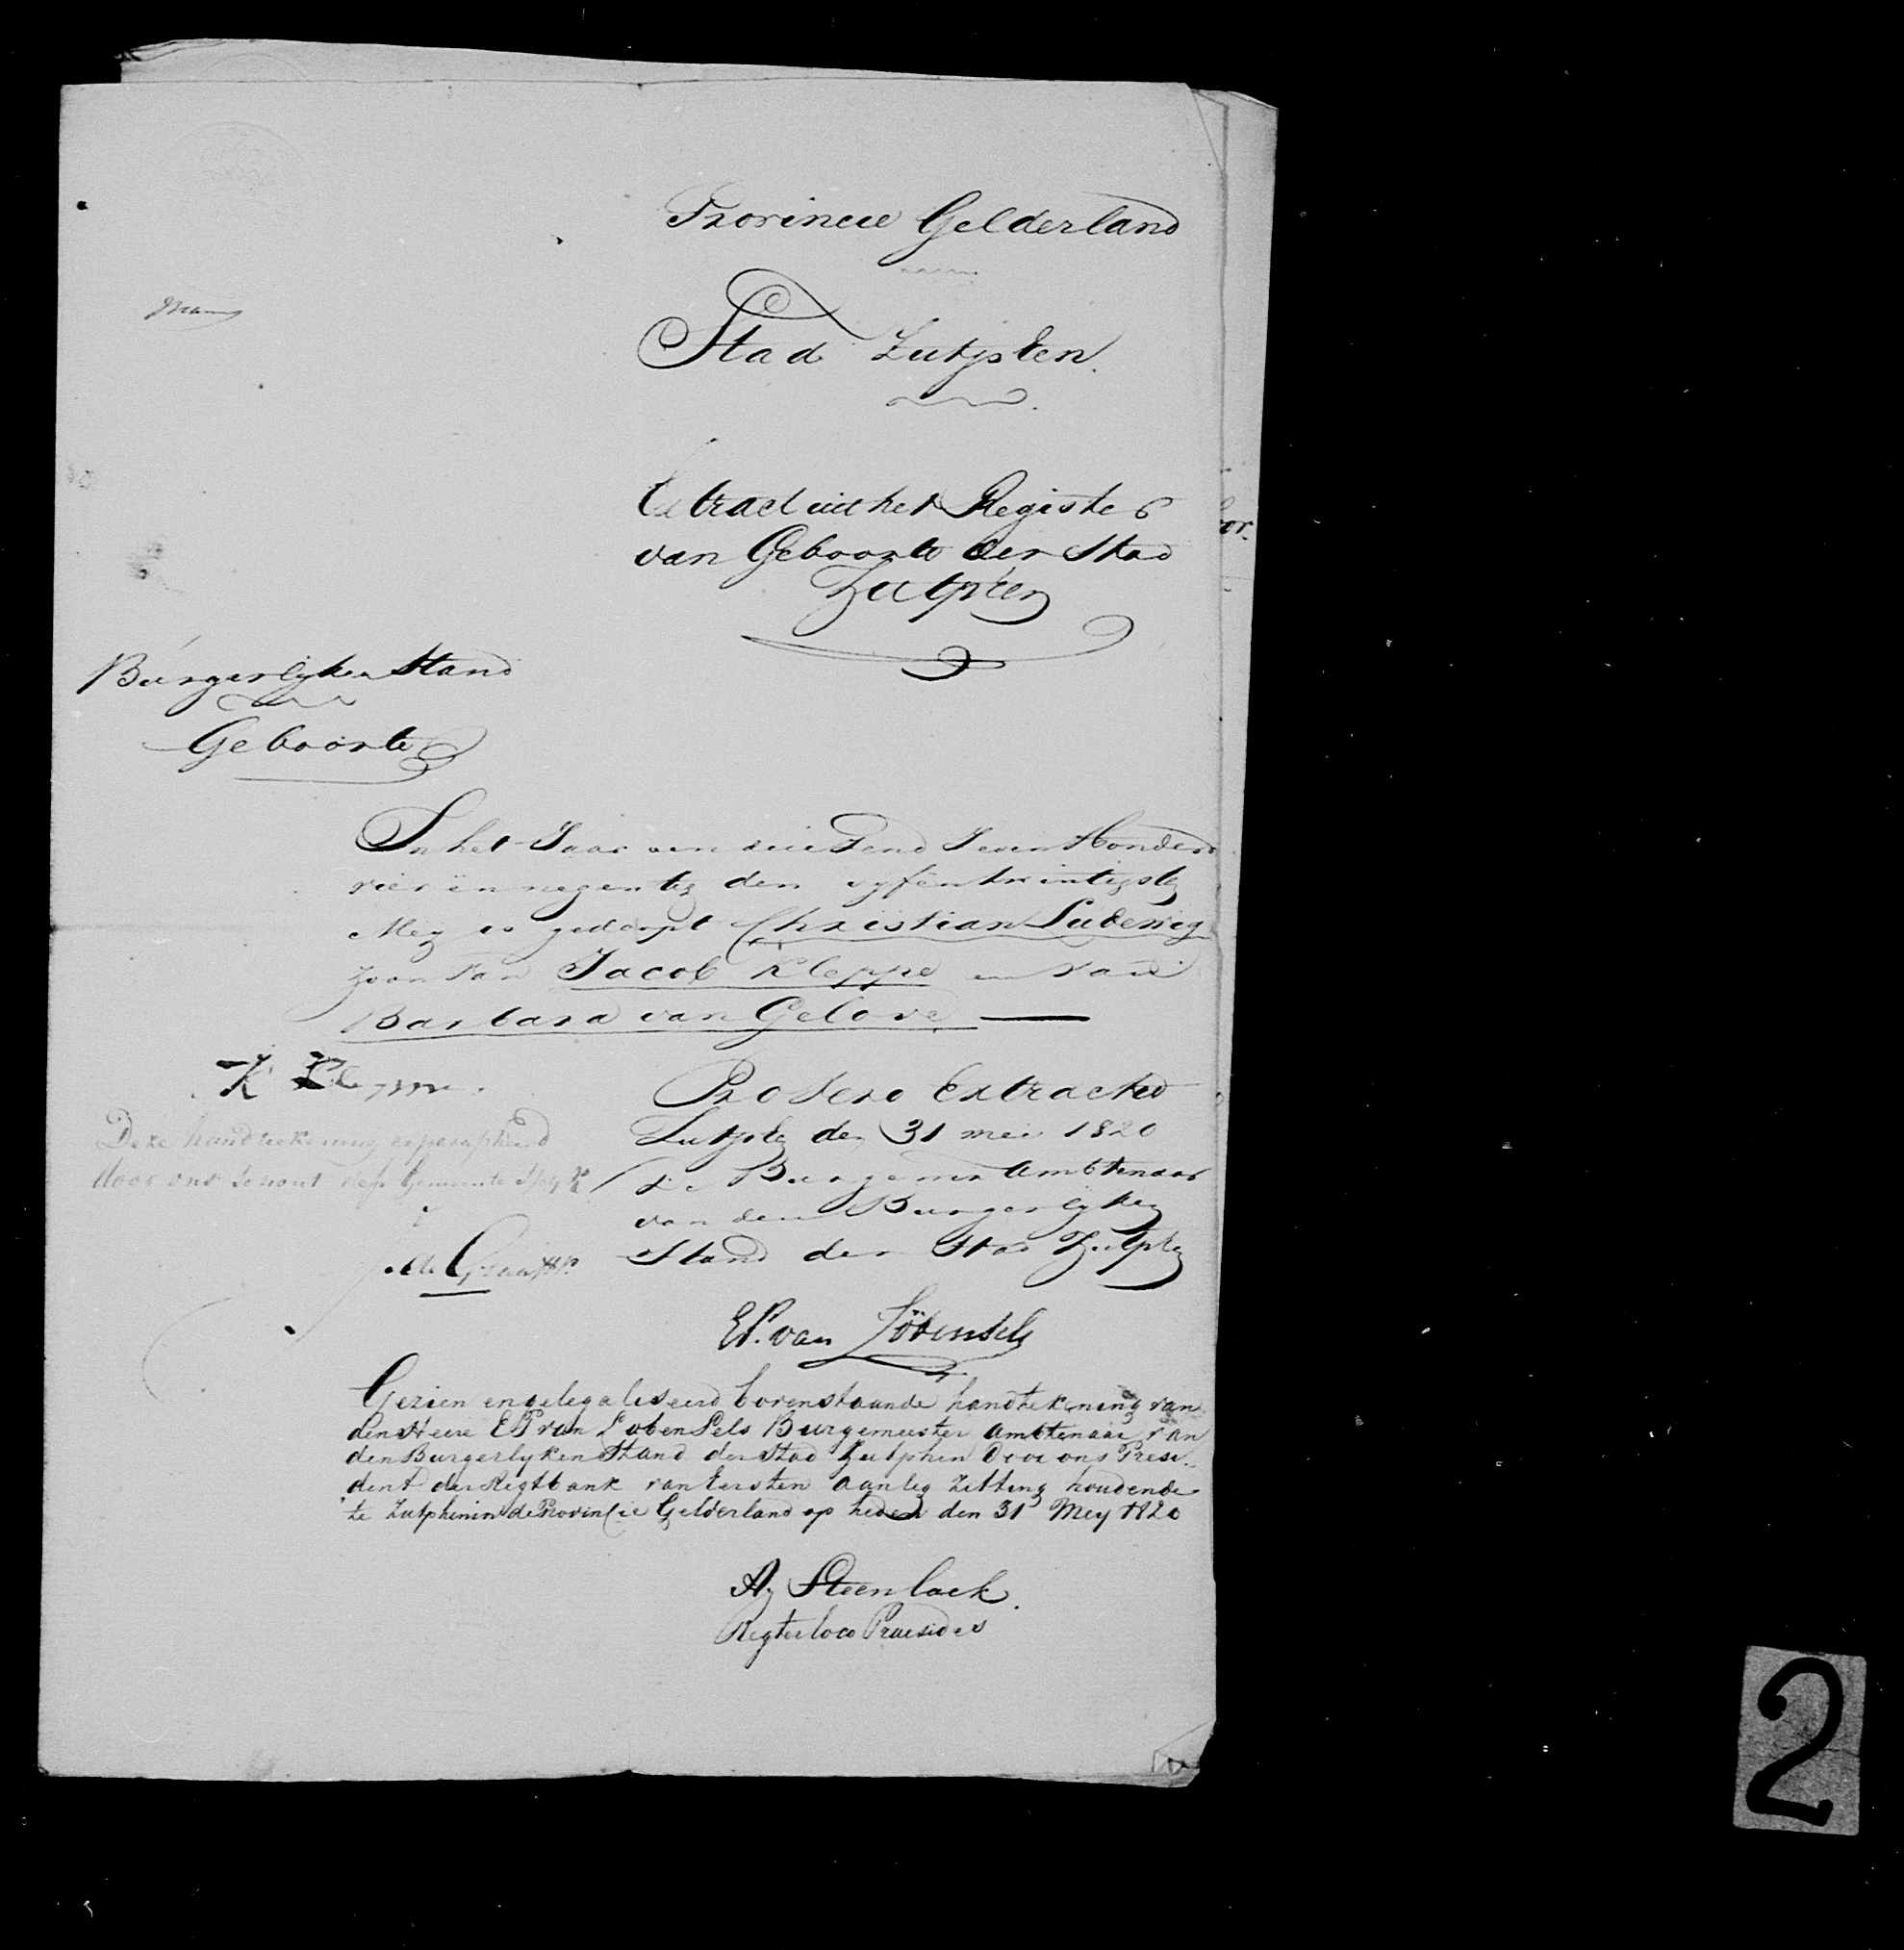 Provincie Gelderland
Stad Zutphen.
Extract uit het Register
van Geboorte der Stad
Zutphen
Burgerlyken Stand
Geboorte
In het Jaar een duizend Seven Honderd
vier en negentig den vyfentwintigste
Mey is gedoopt Christian Ludewig
zoon van Jacob Kleppe en van
Barbara van Gelove
Pro Vero Extracto
Zutphen den 31 mei 1820
De Burgemr Ambtenaar
van den Burgerlyken
Stand der Stad Zutphen
Deze handteekening geparapheerd
door ons
de Graaff
EP. van Löbensels
Gezien en gelegaliseerd bovenstaande handtekening van
den Heere EP van Lobensels Burgemeester ambtenaar van
den Burgerlyken Stand der Stad Zutphen door ons Presi-
dent der Regtbank van Eersten aanleg Zitting houdende
te Zutphen in de Provincie Gelderland op heden den 31 Mey 1820
Steenlack.
Regter loco Praesides
or.
2